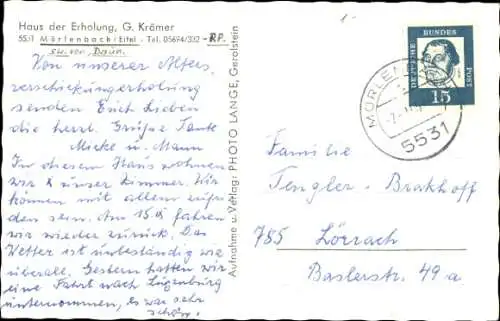 Haus der Erholung, G. Krämer
5531 Mörlenbach/Eifel - Tel. 05694/332 -RP.
sw. vor Daun.
Von unserer Alters
verschickungerholung
senden Euch Lieben
die herzl. Grüße Tante
Micke u. Mann
In diesem Haus wohnen
wir unser Zimmer. Wir
können mit allem zufrie
den sein. Am 15. fahren
wir wieder zurück. Das
Wetter ist unbeständig wie
überall. Gestern hatten wir
eine Fahrt nach Luxenburg
unternommen, es war sehr
schön.
Aufnahme u. Verlag: PHOTO LANGE, Gerolstein
DEUTSCHE BUNDES POST
15
MÜRLEN
5531
Familie
Tengler-Brakhoff
785 Lörrach
Baslerstr. 49 a